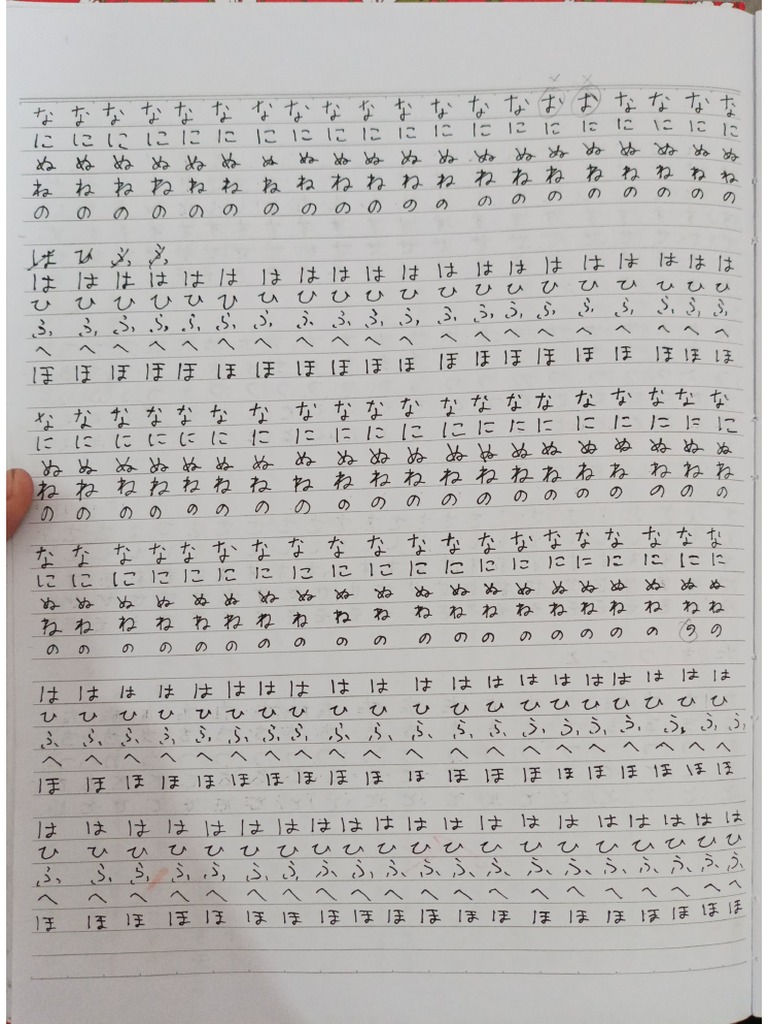 な な な な な な な な な な な な な な お お な な な な
に に に に に に に に に に に に に に に に に に に に
ぬ ぬ ぬ ぬ ぬ ぬ ぬ ぬ ぬ ぬ ぬ ぬ ぬ ぬ ぬ ぬ ぬ ぬ ぬ ぬ
ね ね ね ね ね ね ね ね ね ね ね ね ね ね ね ね ね ね ね ね
の の の の の の の の の の の の の の の の の の の の
は ひ ふ ふ
は は は は は は は は は は は は は は は は は は は は
ひ ひ ひ ひ ひ ひ ひ ひ ひ ひ ひ ひ ひ ひ ひ ひ ひ ひ ひ ひ
ふ ふ ふ ふ ふ ふ ふ ふ ふ ふ ふ ふ ふ ふ ふ ふ ふ ふ ふ ふ
へ へ へ へ へ へ へ へ へ へ へ へ へ へ へ へ へ へ へ へ
ほ ほ ほ ほ ほ ほ ほ ほ ほ ほ ほ ほ ほ ほ ほ ほ ほ ほ ほ ほ
な な な な な な な な な な な な な な な な な な な な
に に に に に に に に に に に に に に に に に に に に
ぬ ぬ ぬ ぬ ぬ ぬ ぬ ぬ ぬ ぬ ぬ ぬ ぬ ぬ ぬ ぬ ぬ ぬ ぬ ぬ
ね ね ね ね ね ね ね ね ね ね ね ね ね ね ね ね ね ね ね ね
の の の の の の の の の の の の の の の の の の の の
な な な な な な な な な な な な な な な な な な な な
に に に に に に に に に に に に に に に に に に に に
ぬ ぬ ぬ ぬ ぬ ぬ ぬ ぬ ぬ ぬ ぬ ぬ ぬ ぬ ぬ ぬ ぬ ぬ ぬ ぬ
ね ね ね ね ね ね ね ね ね ね ね ね ね ね ね ね ね ね ね ね
の の の の の の の の の の の の の の の の の の の の
は は は は は は は は は は は は は は は は は は は は
ひ ひ ひ ひ ひ ひ ひ ひ ひ ひ ひ ひ ひ ひ ひ ひ ひ ひ ひ ひ
ふ ふ ふ ふ ふ ふ ふ ふ ふ ふ ふ ふ ふ ふ ふ ふ ふ ふ ふ ふ
へ へ へ へ へ へ へ へ へ へ へ へ へ へ へ へ へ へ へ へ
ほ ほ ほ ほ ほ ほ ほ ほ ほ ほ ほ ほ ほ ほ ほ ほ ほ ほ ほ ほ
は は は は は は は は は は は は は は は は は は は は
ひ ひ ひ ひ ひ ひ ひ ひ ひ ひ ひ ひ ひ ひ ひ ひ ひ ひ ひ ひ
ふ ふ ふ ふ ふ ふ ふ ふ ふ ふ ふ ふ ふ ふ ふ ふ ふ ふ ふ ふ
へ へ へ へ へ へ へ へ へ へ へ へ へ へ へ へ へ へ へ へ
ほ ほ ほ ほ ほ ほ ほ ほ ほ ほ ほ ほ ほ ほ ほ ほ ほ ほ ほ ほ